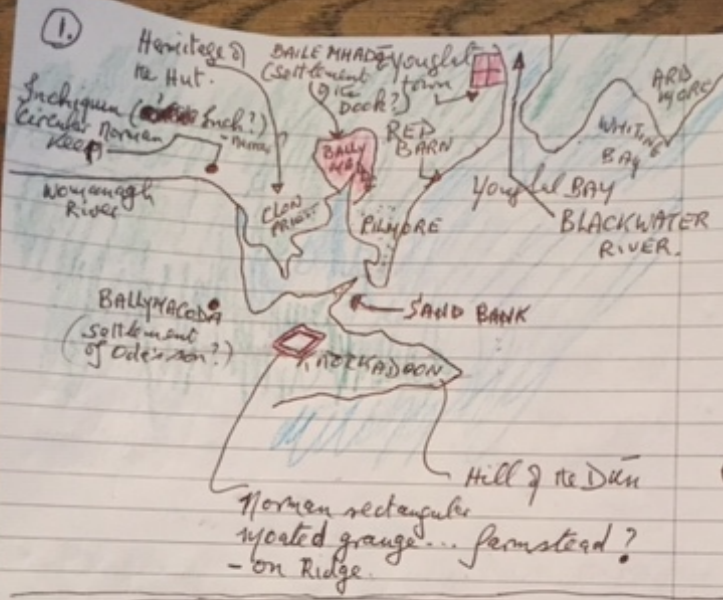 1.
Hermitage of
the Hut.
BAILE MHADE
(settlement
of the
Dock?)
Youghal
town
ARD
MORE
Inchiquin (Inch?)
Circular Norman
Keep
BALLY
RED
BARN
WHITING
BAY
Womanagh
River
CLON
PRIEST
PILMORE
Youghal BAY
BLACKWATER
RIVER.
BALLYMACODA
(settlement
of Oderson?)
SAND BANK
KNOCKADOON
Hill of the Dún
Norman rectangular
moated grange... farmstead?
- on Ridge.